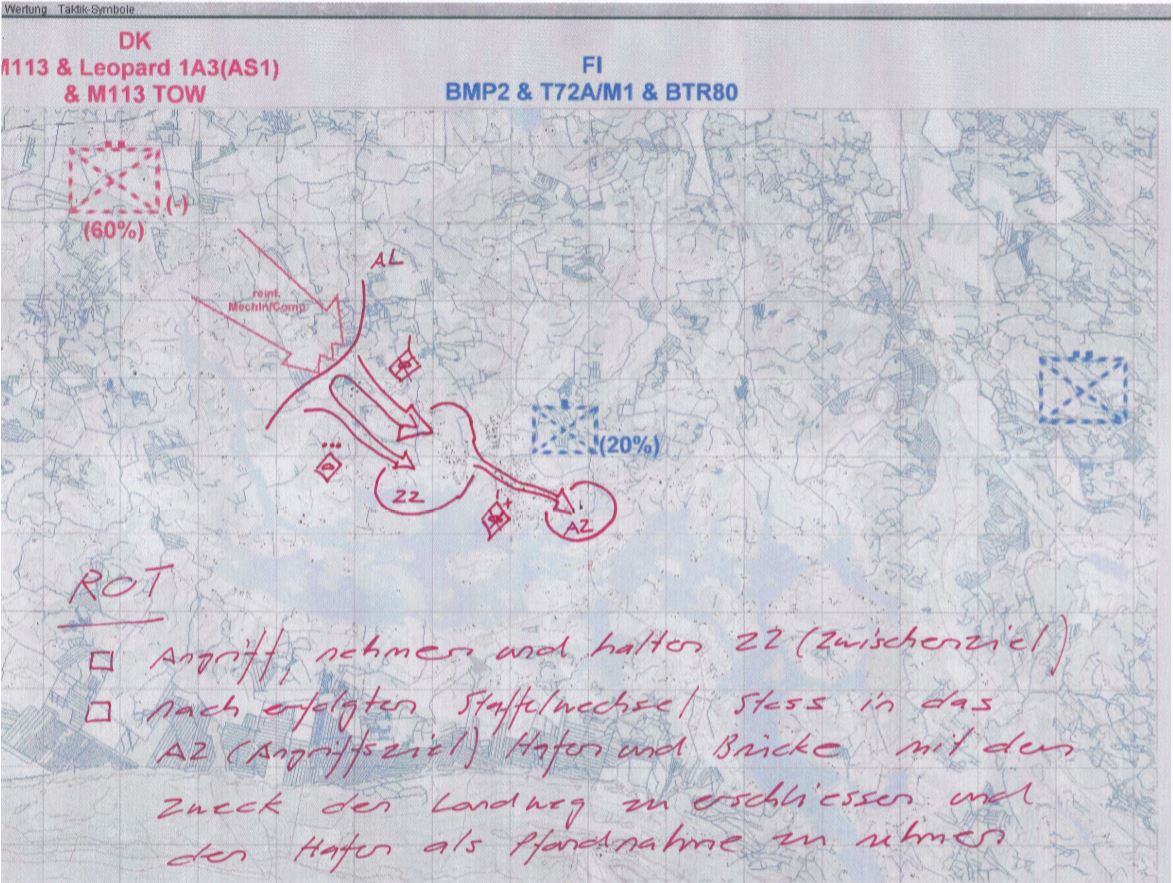 Wertung Taktik-Symbole
DK
M113 & Leopard 1A3(AS1)
& M113 TOW
FI
BMP2 & T72A/M1 & BTR80
(-)
(60%)
AL
reinf.
MechInf/Comp
(20%)
ZZ
AZ
ROT
Angriff, nehmen und halten ZZ (Zwischenziel)
nach erfolgten Staffelwechsel Stoss in das
AZ (Angriffsziel) Hafen und Brücke mit dem
Zweck den Landweg zu erschliessen und
den Hafen als Pfandnahme zu nehmen